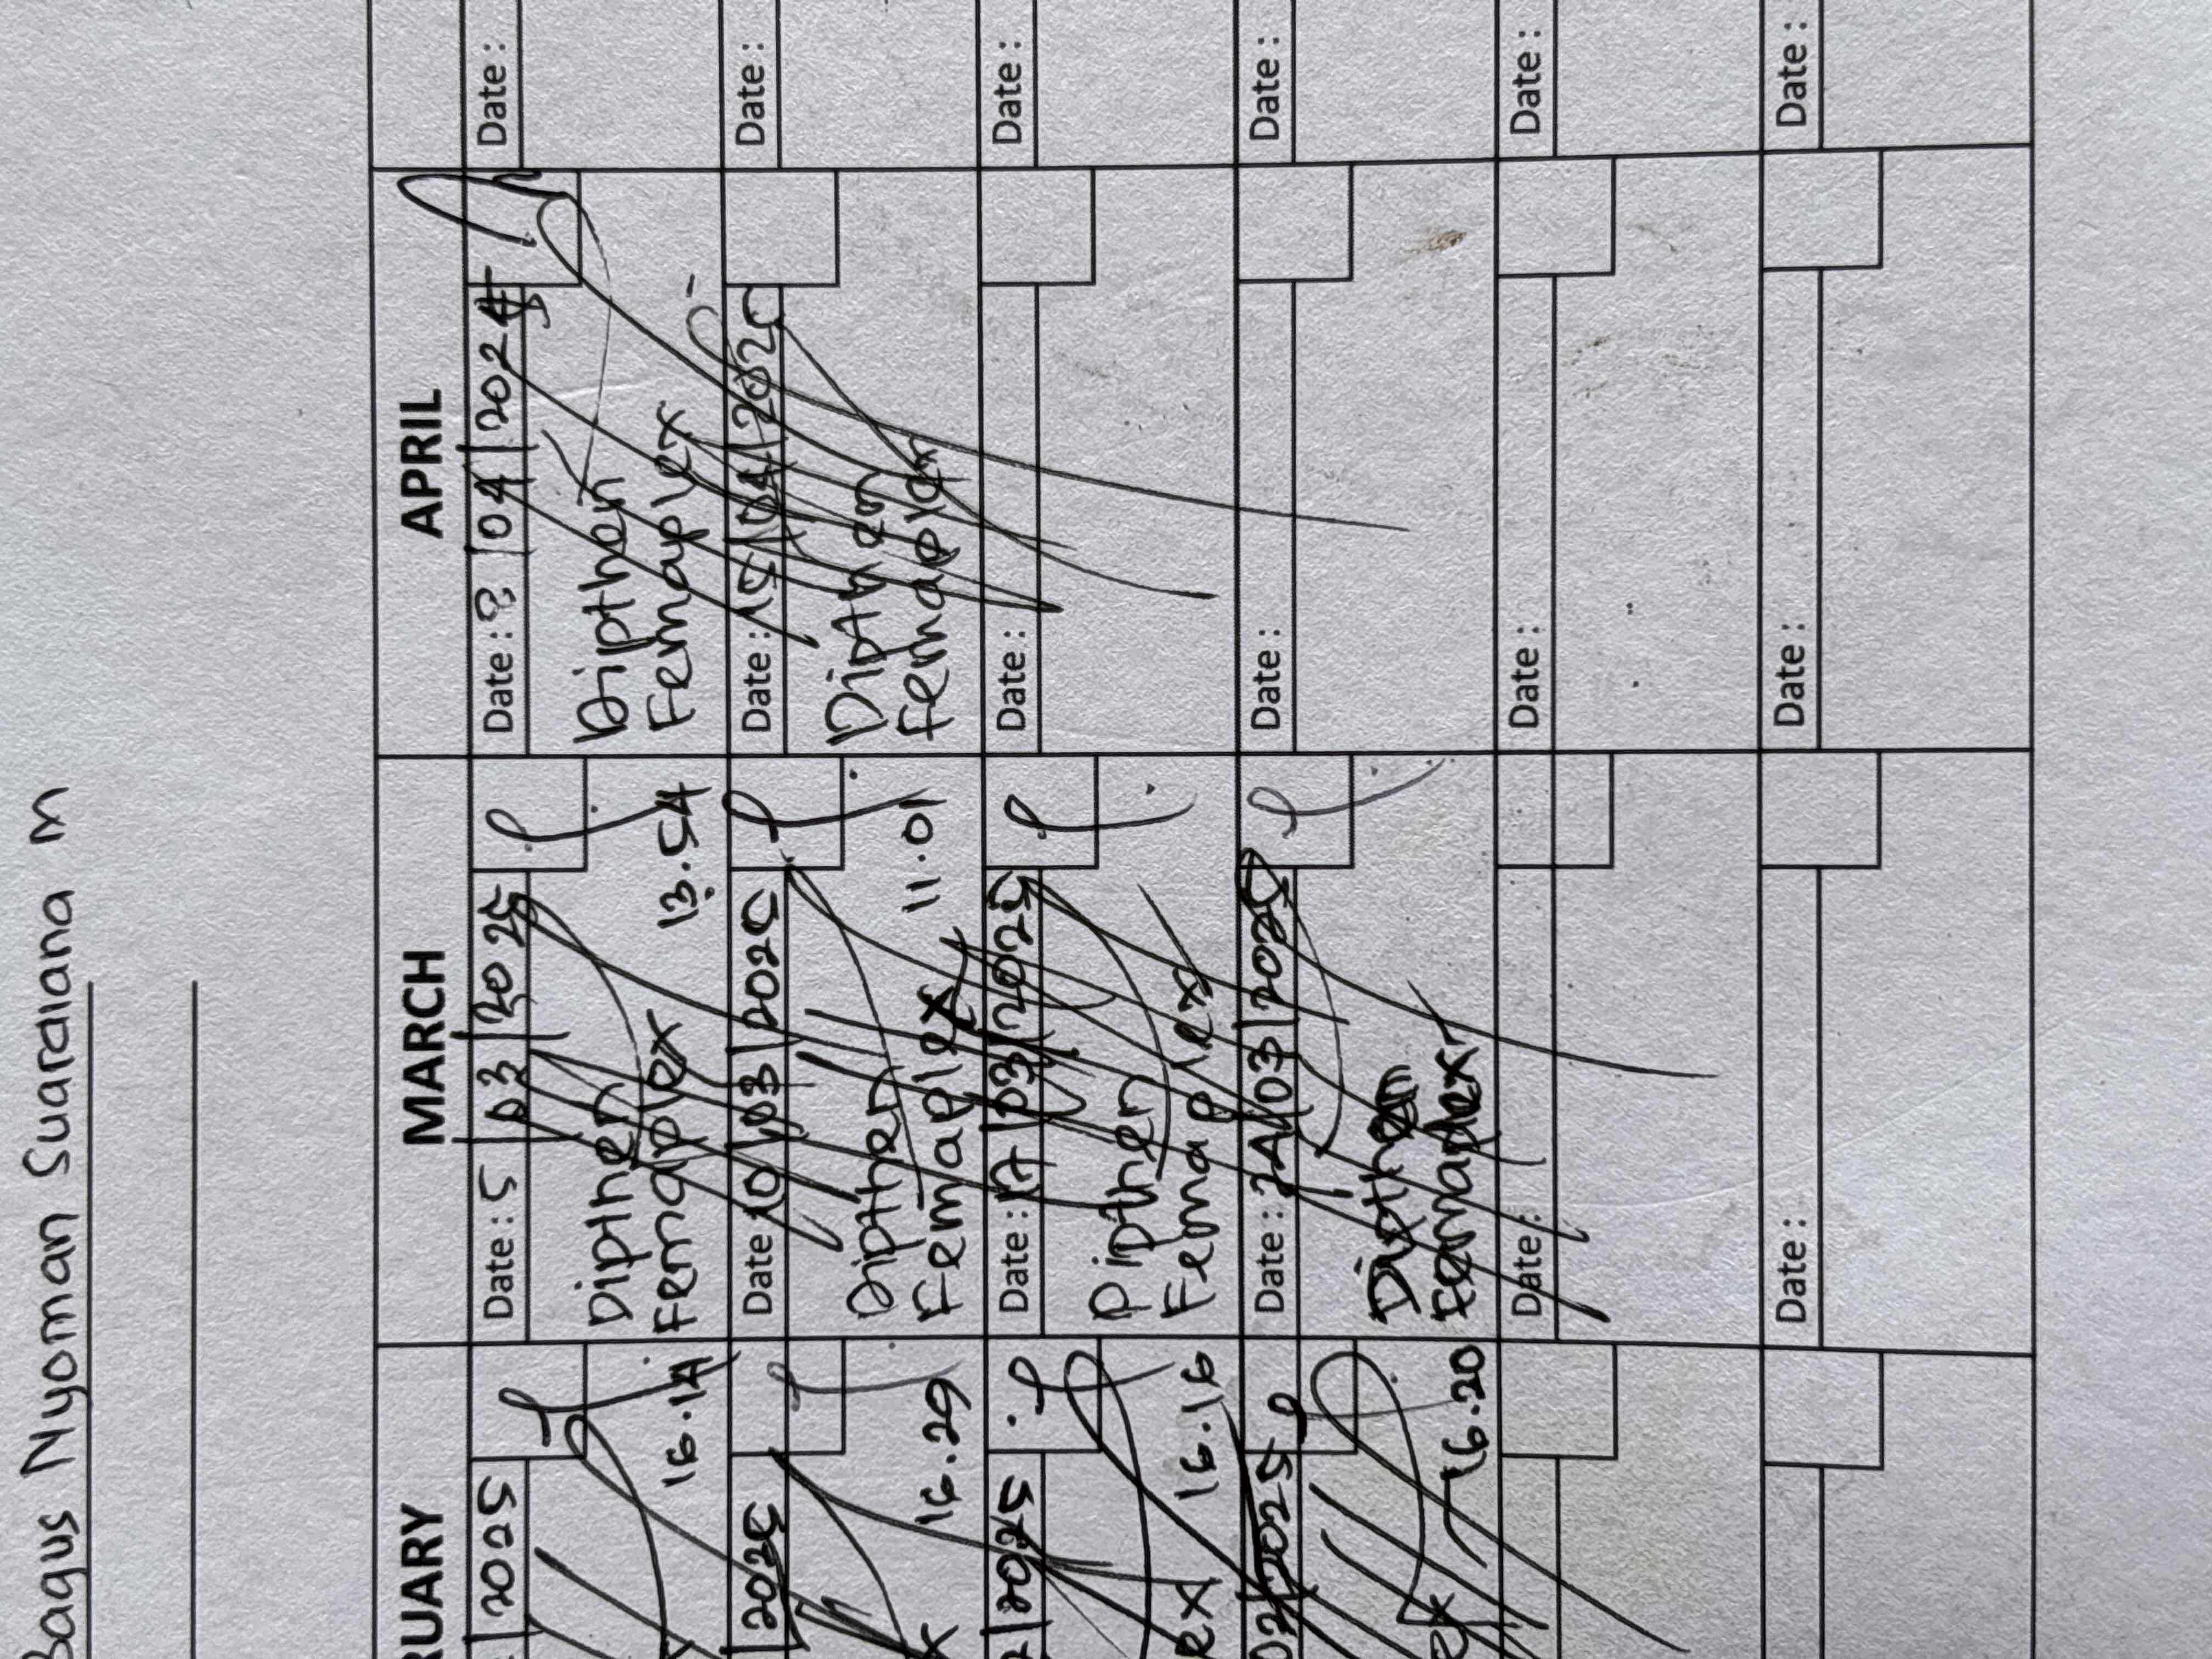 Bagus Nyoman Suaralana M
RUARY
2025
16.14
2025
16.29
2025
ex
16.16
02/2025
ex
16.20
MARCH
Date: 5 | 03 | 2025
Dipthen
Femaplex
13.54
Date: 10 | 03 | 2025
Dipthen
Femaplex
11.01
Date: 17 | 03 | 2025
Dipthen
Femaplex
Date: 24 | 03 | 2025
Date:
Date:
APRIL
Date: 8 | 04 | 202
Dipthen
Femaplex
Date: 15 | 04 | 2025
Dipthen
Date:
Date:
Date:
Date:
Date:
Date:
Date:
Date:
Date:
Date: